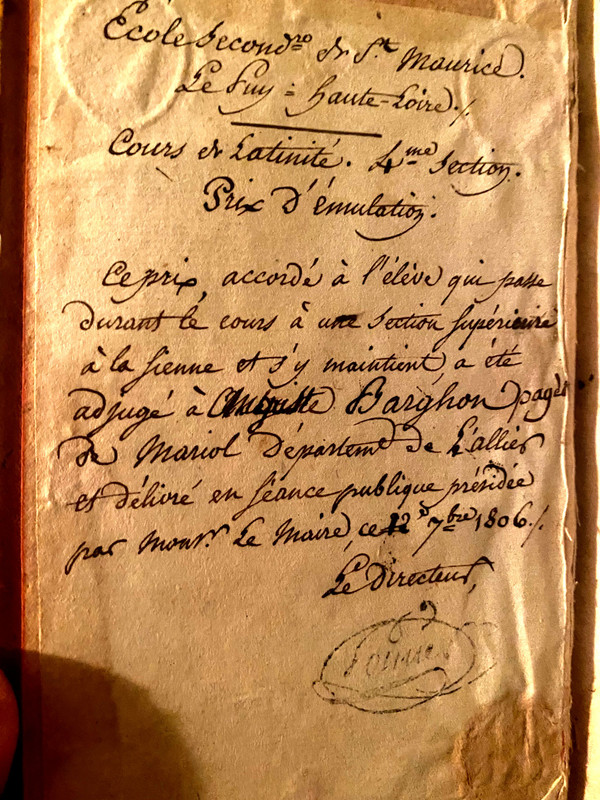 École Second.re de St. Maurice.
Le Puy = Haute-Loire./.
Cours de Latinité. 4.me Section.
Prix D'émulation.
Ce prix, accordé à l'élève qui passe
durant le cours à une Section Supérieure
à la Sienne et s'y maintient, a été
adjugé à Auguste Barghon, pagès
de Mariol Départemt. de L'allier
et délivré en Séance publique présidée
par Monsr. Le Maire, ce 7.bre 1806./.
Le Directeur,